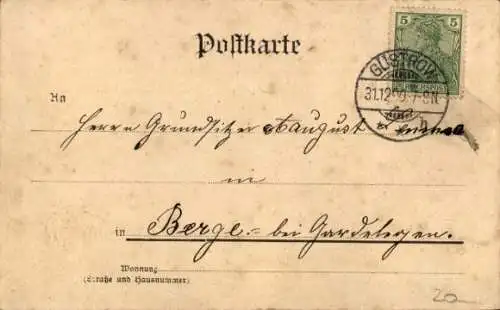 5
Postkarte
GÜSTROW
31.12
An
Herrn Grundsitzer August
in
in Berge. bei Gardelegen.
Wohnung
(Straße und Hausnummer)
20